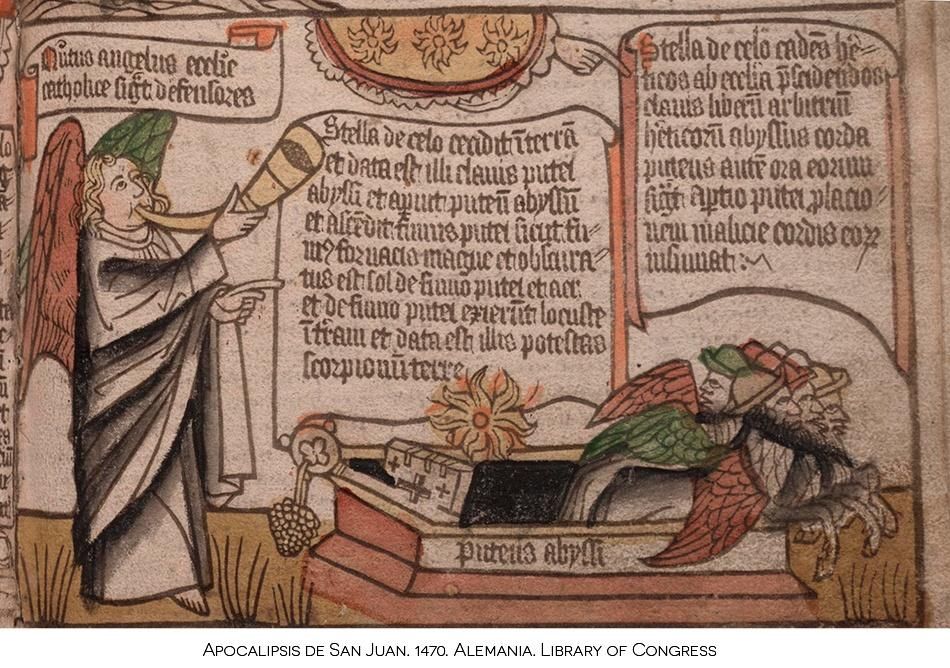 Qu̅tus angelus ecclie̅
catholice sig̅t defensores
Stella de celo cecidit i̅ terra̅
et data est illi clauis putei
abyssi et apiuit puteu̅ abyssi
et asce̅dit fumus putei sicut fu=
mꝰ fornacis magne et obscura=
tus est sol de fumo putei et aer
et de fumo putei exieru̅t locuste
i̅ t̅ram et data est illis potestas
scorpionu̅ terre
Stella de celo cade̅s he̅=
ticos ab ecclia
clauis liberu̅ arbitriu̅
he̅ticoru̅ abyssus corda
puteus aute̅ ora eorum
sig̅t Aptio putei
nem malicie cordis
insinuat
puteus abyssi
APOCALIPSIS DE SAN JUAN. 1470. ALEMANIA. LIBRARY OF CONGRESS